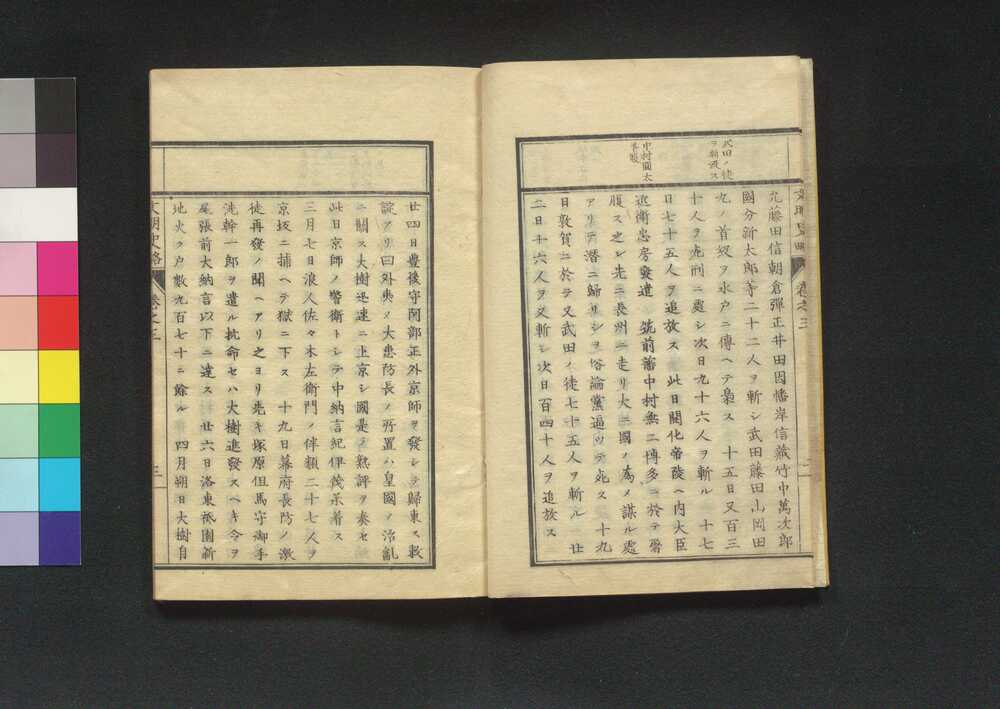 武田ノ徒
ヲ斬殺ス
中村圓太
屠腹
允藤田信朝倉彈正井田因幡岸信藏竹中萬次郎
國分新太郎等二十二人ヲ斬シ武田藤田山岡田
丸ノ首級ヲ水戸ニ傳ヘテ梟ス 十五日又百三
十人ヲ死刑ニ處シ次日九十六人ヲ斬ル 十七
日七十五人ヲ追放ス 此日開化帝陵ヘ内大臣
近衛忠房發遣 筑前藩中村無二博多ニ於テ屠
腹ス之レ先ニ長州ニ走リ大ニ國ノ為メ謀ル處
アリテ潜ニ歸リシヲ俗論黨逼リテ死ス 十九
日敦賀ニ於テ又武田ノ徒七十五人ヲ斬ル 廿
二日十六人ヲ又斬シ次日百四十人ヲ追放ス
文明史略 卷之三
廿四日豊後守阿部正外京師ヲ發シテ歸東ス敕
諚アリ曰外夷ノ大患防長ノ所置ハ皇國ノ治亂
ニ關ス大樹迅速ニ上京シ國是ヲ熟評ヲ奏セ
此日京師ノ警衛トシテ中納言紀伊茂承着ス
三月七日浪人佐々木左衛門ノ伴類二十七人ヲ
京坂ニ捕ヘテ獄ニ下ス 十九日幕府長防ノ激
徒再發ノ聞ヘアリ之ヨリ先キ塚原但馬守御手
洗幹一郎ヲ遣ル抗命セハ大樹進發スヘキ令ヲ
尾張前大納言以下ニ達ス 廿六日洛東祇園新
地火ク戸數九百七十ニ餘ル 四月朔日大樹自
文明史略 卷之三 三